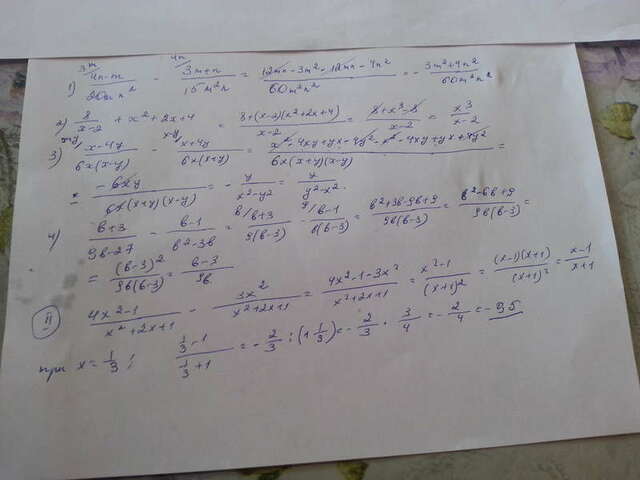 1) 3m/ 4n-m / 20mn² - 4n/ 3m+n / 15m²n = 12mn-3m²-12mn-4n² / 60m²n² = - 3m²+4n² / 60m²n²
2) 8 / x-2 + x²+2x+4 = 8+(x-2)(x²+2x+4) / x-2 = 8+x³-8 / x-2 = x³ / x-2
3) x+y/ x-4y / 6x(x-y) - x-y/ x+4y / 6x(x+y) = x²-4xy+yx-4y²-x²-4xy+yx+4y² / 6x(x+y)(x-y) =
= -6xy / 6x(x+y)(x-y) = - y / x²-y² = y / y²-x².
4) b+3 / 9b-27 - b-1 / b²-3b = b/ b+3 / 9(b-3) - 9/ b-1 / b(b-3) = b²+3b-9b+9 / 9b(b-3) = b²-6b+9 / 9b(b-3) =
= (b-3)² / 9b(b-3) = b-3 / 9b
II 4x²-1 / x²+2x+1 - 3x² / x²+2x+1 = 4x²-1-3x² / x²+2x+1 = x²-1 / (x+1)² = (x-1)(x+1) / (x+1)² = x-1 / x+1
при x = 1/3 ; 1/3 -1 / 1/3 +1 = - 2/3 : (1 1/3) = - 2/3 · 3/4 = - 2/4 = -0,5